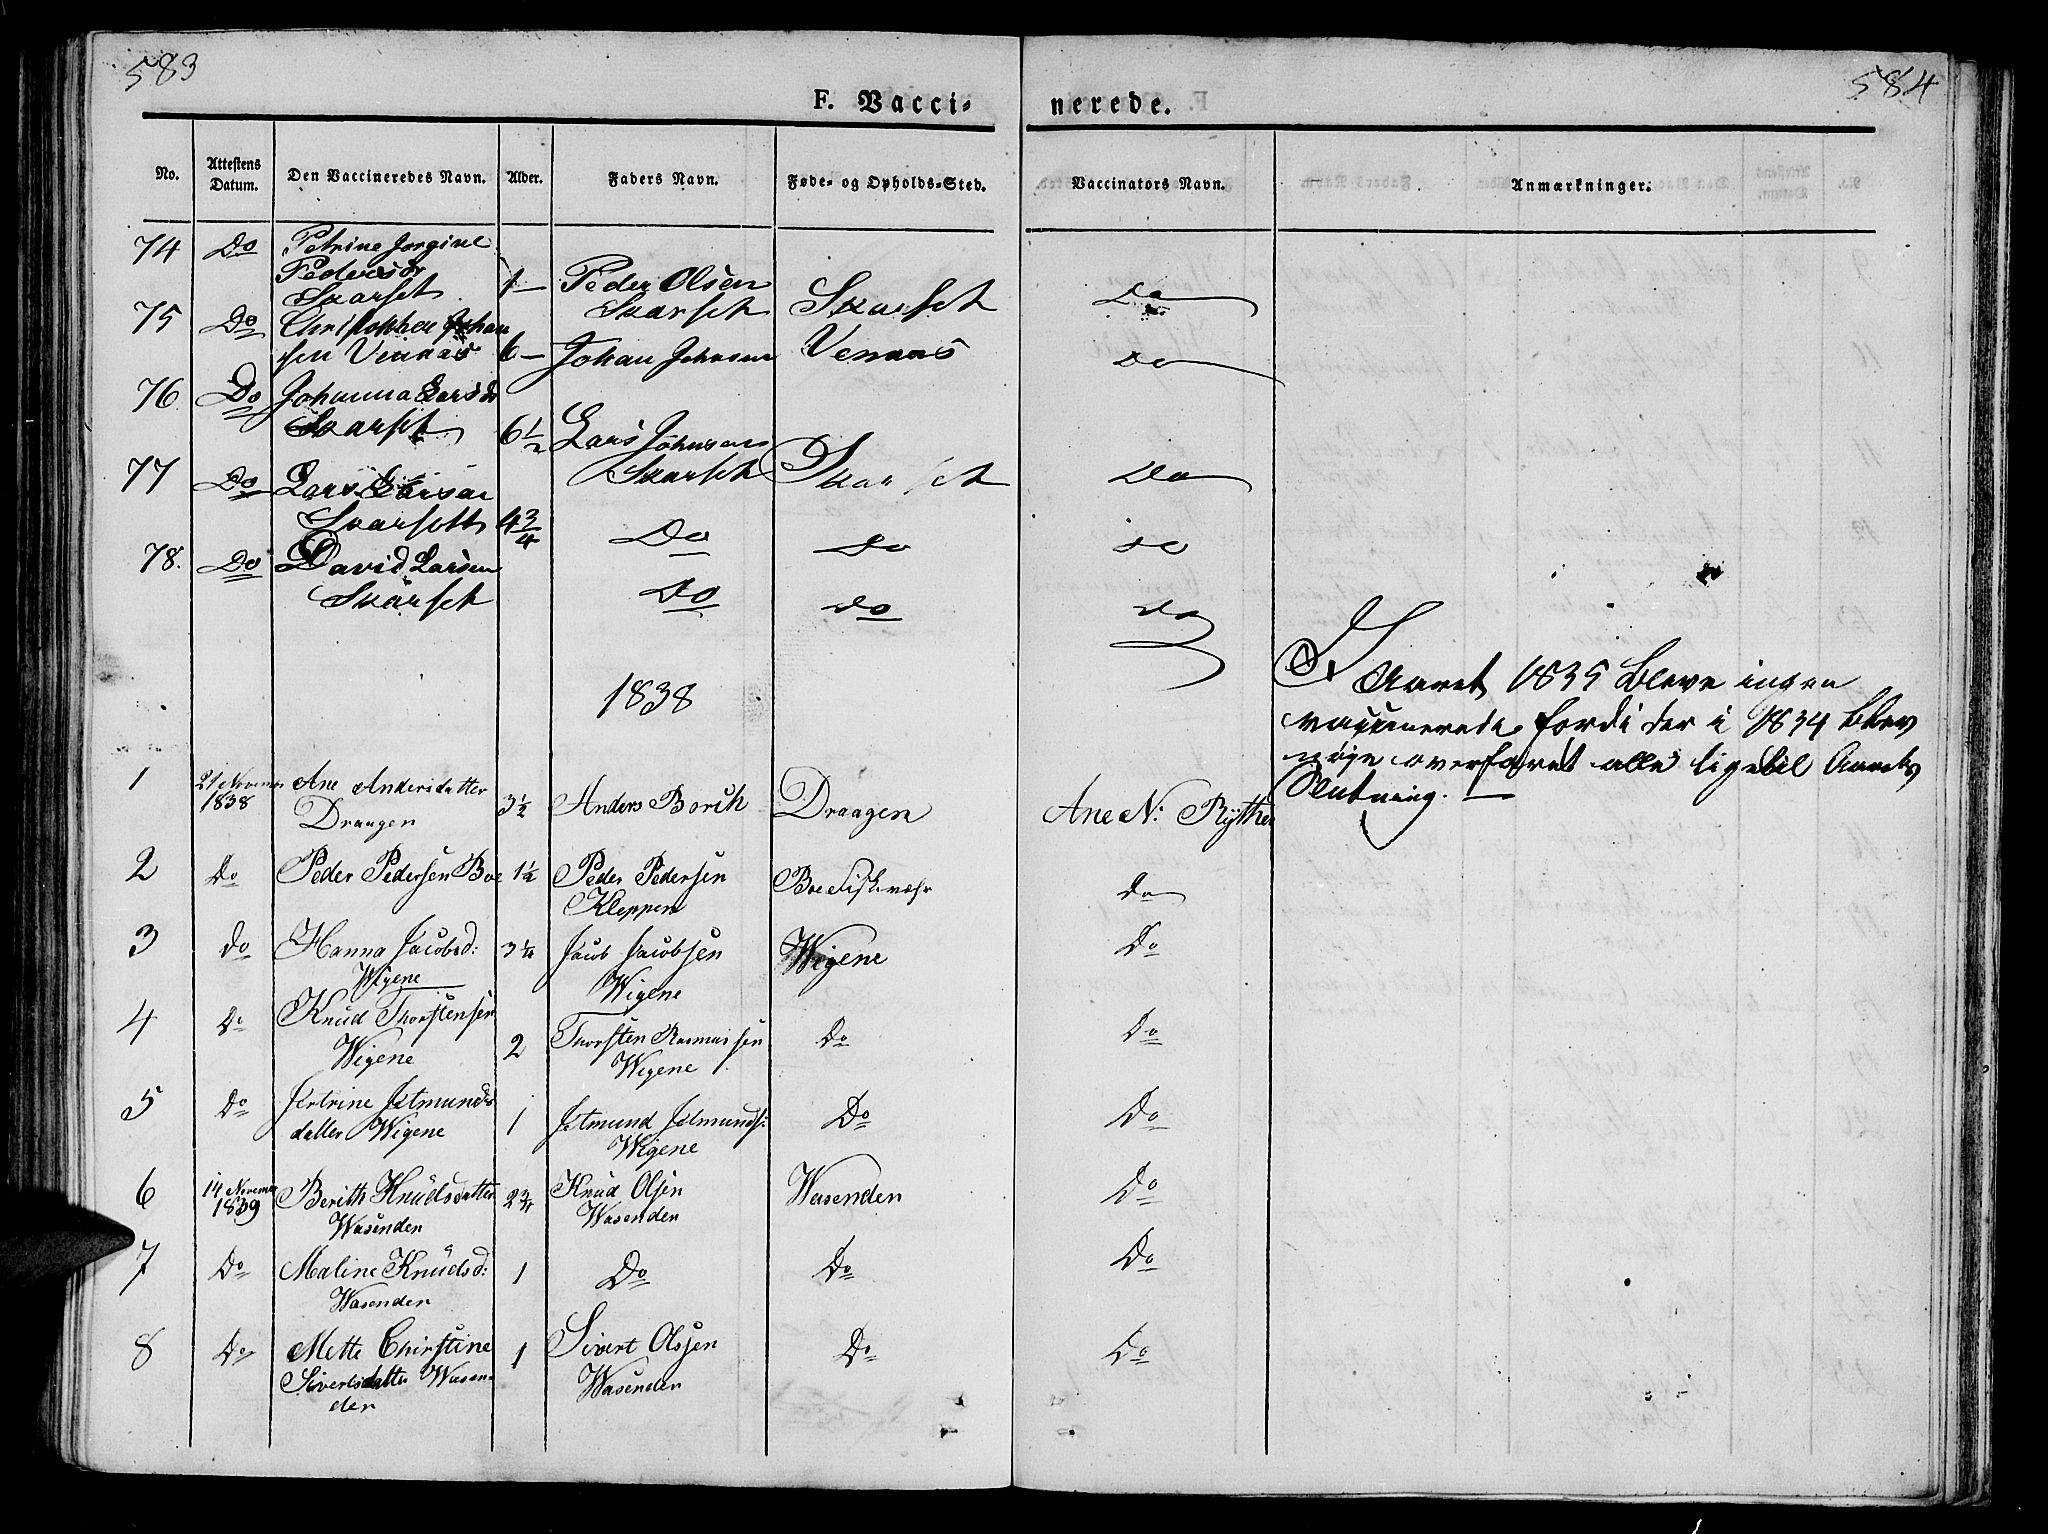 583
584
F. Vacci-
nerede.
No.
Attestens Datum.
Den Vaccineredes Navn.
Alder.
Faders Navn.
Føde- og Opholds-Sted.
Vaccinators Navn.
Anmærkninger.
74 Do Petrine Jorgine
Pedersdr 1 Peder Olsen
Skarset Skarset Skarset Do
75 Do Christopher Johan
sen Venaas 6 Johan Johnsen Venaas Do
76 Do Johanna Larsdr
Skarset 6 1/2 Lars Johnsen
Skarset Skarset Do
77 Do Lars Larsen
Skarsett 4 3/4 Do Do Do
78. Do David Larsen
Skarset Do Do Do
I Aaret 1835 bleve ingen
vaccinerede fordi der i 1834 blev
nøje overfaret alle ligetil Aarets
Slutning.
1838
1 21 Novemr 1838 Ane Andersdatter
Draagen 3 1/2 Anders Borch Draagen Ane N: Rÿther
2 Do Peder Pedersen Boe 1 1/2 Peder Pedersen
Kleppen Boe Fiskevæhr Do
3 Do Hanna Jacobsd:
Wigene 3 1/4 Jacob Jacobsen
Wigene Wigene Do
4 Do Knud Thorstensen
Wigene 2 Thorsten Rasmussen
Wigene Do Do
5 Do Jertrine Jetmunds
datter Wigene 1 Jetmund Jetmunds:
Wigene Do Do
6 14 Novemr 1839 Berith Knudsdatter
Wasenden 2 3/4 Knud Olsen
Wasenden Wasenden Do
7 Do Maline Knudsd:
Wasenden 1 Do Do Do
8 Do Mette Chirstine
Sivertsdatter Wasen
den 1 Sivert Olssen
Wasenden Do Do